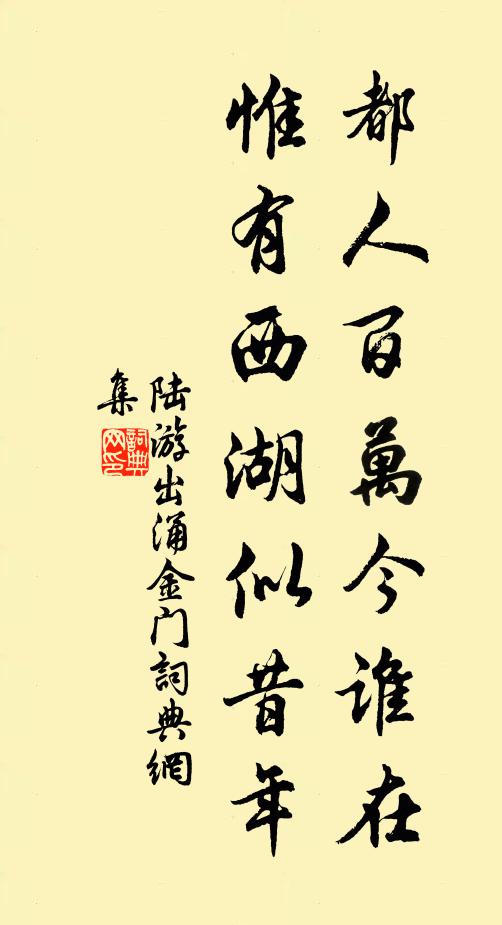 都人百萬今誰在
惟有西湖似昔年
陆游出涌金门詞典網
集
詞典网印